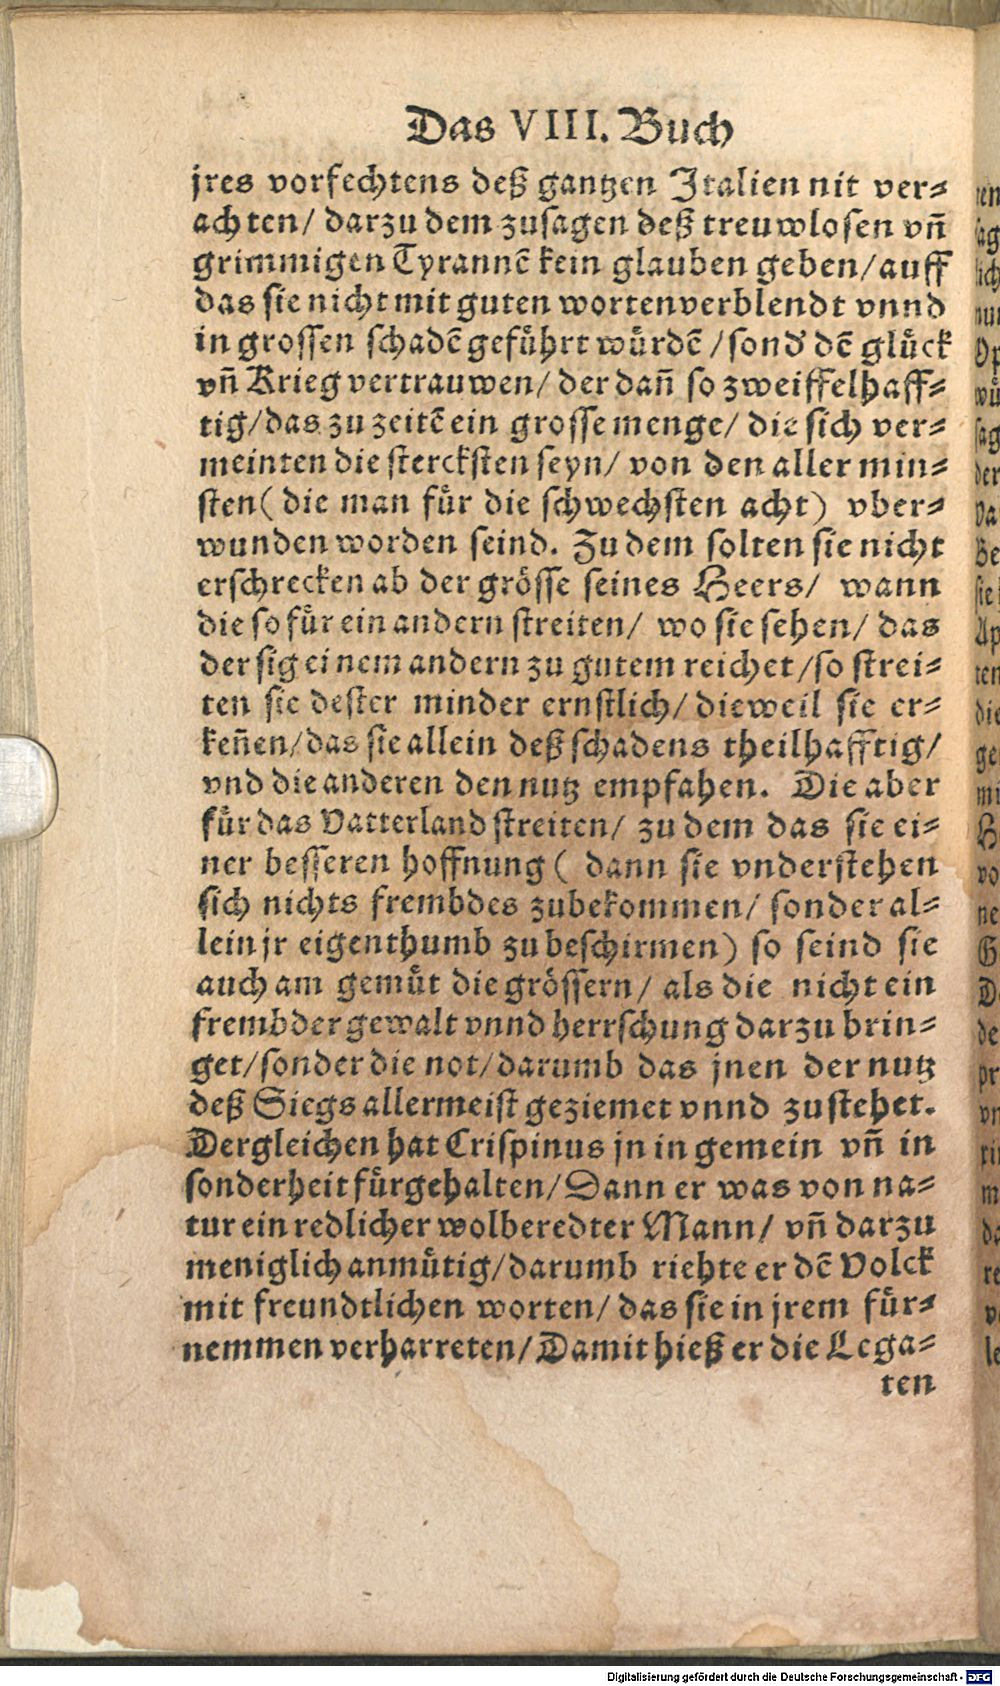 Das VIII. Buch
jres vorfechtens deß gantzen Italien nit ver⸗
achten/ darzu dem zusagen deß treuwlosen vñ
grimmigen Tyrannẽ kein glauben geben/ auff
das sie nicht mit guten worten verblendt vnnd
in grossen schadẽ gefuͤhrt wuͤrdẽ/ sond' dẽ gluͤck
vñ Krieg vertrauwen/ der dañ so zweiffelhaff⸗
tig/ das zu zeitẽ ein grosse menge/ die sich ver⸗
meinten die stercksten seyn/ von den aller min⸗
sten( die man fuͤr die schwechsten acht) vber⸗
wunden worden seind. Zu dem solten sie nicht
erschrecken ab der groͤsse seines Heers/ wann
die so fuͤr ein andern streiten/ wo sie sehen/ das
der sig einem andern zu gutem reichet/ so strei⸗
ten sie dester minder ernstlich/ dieweil sie er⸗
keñen/ das sie allein deß schadens theilhafftig/
vnd die anderen den nutz empfahen. Die aber
fuͤr das Vatterland streiten/ zu dem das sie ei⸗
ner besseren hoffnung ( dann sie vnderstehen
sich nichts frembdes zubekommen/ sonder al⸗
lein jr eigenthumb zu beschirmen) so seind sie
auch am gemuͤt die groͤssern/ als die nicht ein
frembder gewalt vnnd herrschung darzu brin⸗
get/ sonder die not/ darumb das jnen der nutz
deß Siegs allermeist geziemet vnnd zustehet.
Dergleichen hat Crispinus jn in gemein vñ in
sonderheit fuͤrgehalten/ Dann er was von na⸗
tur ein redlicher wolberedter Mann/ vñ darzu
meniglich anmuͤtig/ darumb riehte er dẽ Volck
mit freundtlichen worten/ das sie in jrem fuͤr⸗
nemmen verharreten/ Damit hieß er die Lega⸗
ten
Digitalisierung gefördert durch die Deutsche Forschungsgemeinschaft - DFG